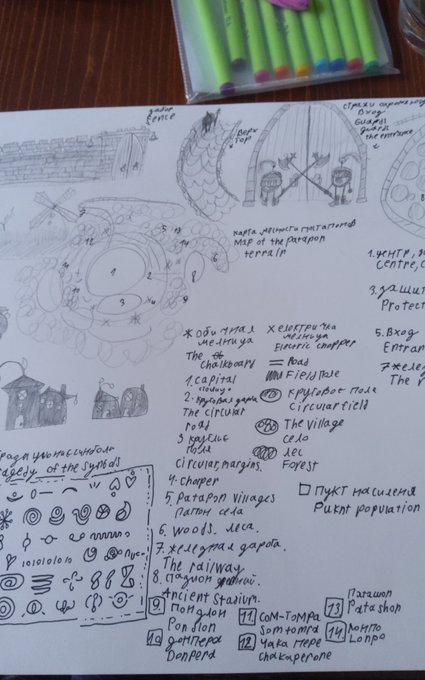 забор
Fence
Верх
Top
стражи охраняют
Вход
Guards
guard
the entrance
карта месности патапонов
Map of the patapon
terrain
1. центр,
Centre, c
3. защит
Protect
5. Вход
Entran
7 желез
The r
Ж обичная
мелница
The chalkboard
Х електричка
мелница
Electric chopper
1. capital
Road
Field Pole
2. круговая дарога
The circular
road
круговое поля
Circular field
3 круглые
поля
circular margins.
The village
село
лес
Forest
4. chopper
5. Patapon villages
Патпон села
6. woods. леса.
7. железная дарога.
The railway
8. стадион древний.
Ancient Stadium.
Пукт населеня
Puknt population
tragedy of the symbols
1010101010
9 Пондлон
Pondlon
10 Донпера
Donpera
11 Сом-томпа
Somtompa
12 Чака пере
Chakaperone
13 Паташон
Patashon
14 Лонпо
Lonpo